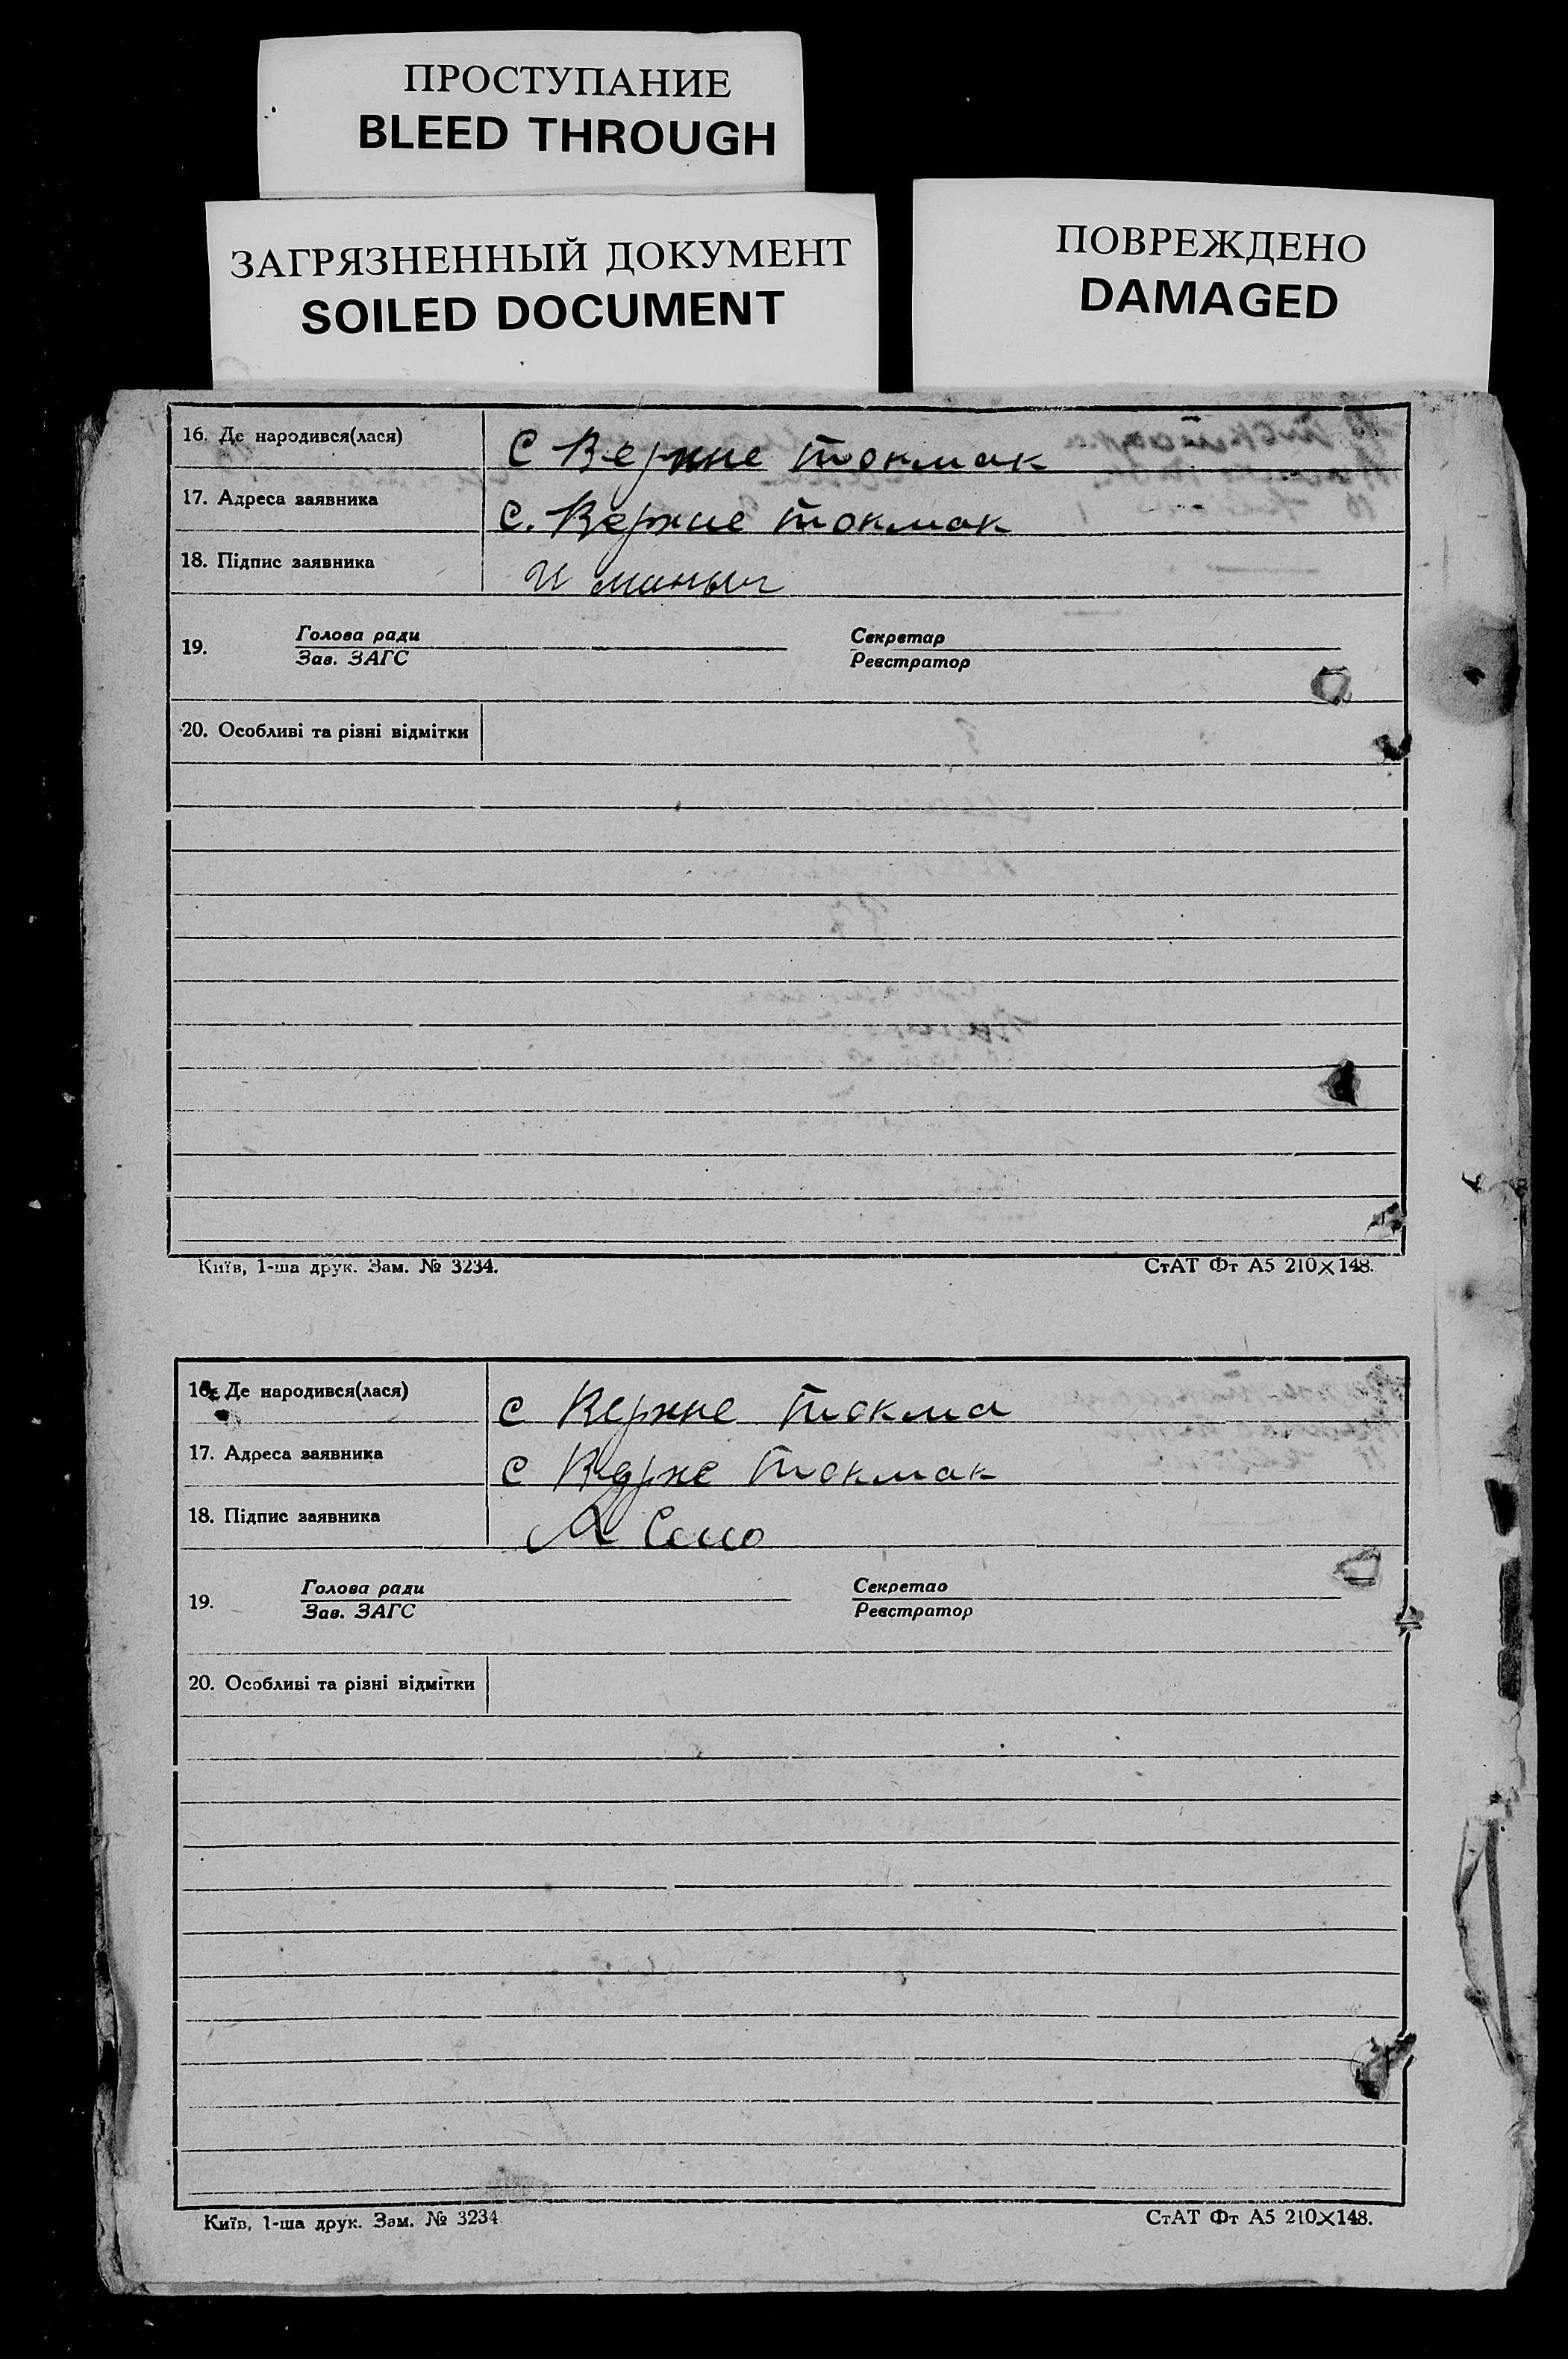 ПРОСТУПАНИЕ
BLEED THROUGH
ЗАГРЯЗНЕННЫЙ ДОКУМЕНТ
SOILED DOCUMENT
ПОВРЕЖДЕНО
DAMAGED
16. Де народився(лася) С Верхне токмак
17. Адреса заявника С. Верхне токмак
18. Підпис заявника И
19. Голова ради Секретар
Зав. ЗАГС Реєстратор
20. Особливі та різні відмітки
Київ, 1-ша друк. Зам. № 3234. СтАТ Фт А5 210×148.
16. Де народився(лася) с Верхне токма
17. Адреса заявника с Верхе токмак
18. Підпис заявника
19. Голова ради Секретар
Зав. ЗАГС Реєстратор
20. Особливі та різні відмітки
Київ, 1-ша друк. Зам. № 3234 СтАТ Фт А5 210×148.